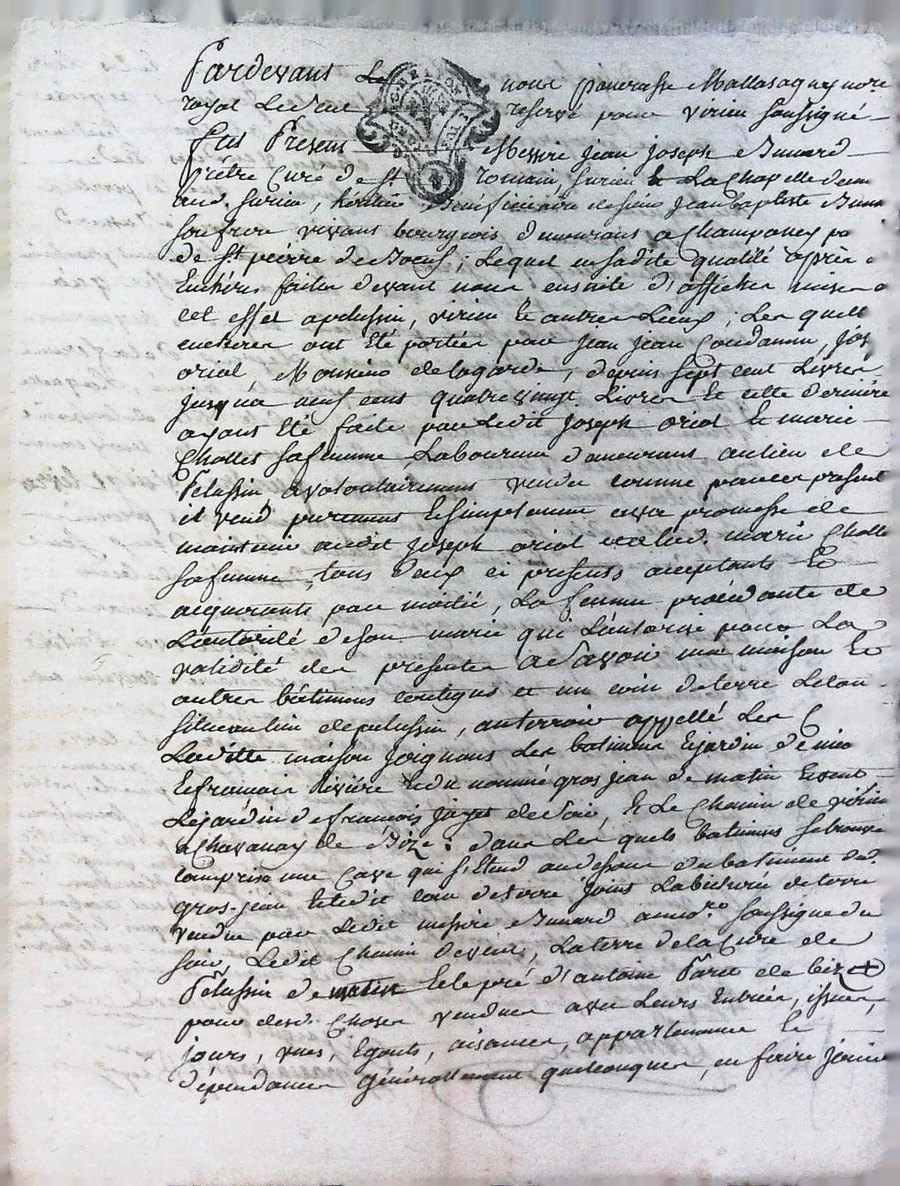 Pardevant Le nous pancrasse Mallassagney no.re
royal Le Seul reservé pour virieu soussigné
fut Present Messire Jean Joseph Bunard
Prêtre Curé de St romain Surieu La Chapelle dem.t
aud. Surieu, heritier Beneficiaire de sieur Jean baptiste Buna
son frere vivant bourgeois demeurant a Champoney p.o
de St pierre de Boeuf; Lequel en sadite qualité après
Enchères faites devant nous ensuite d'affiches mises a
cet effet apelussin, virieu et autres Lieux; Les quelles
encheres ont été portées par jean jean Coudanne, jos
oriol Mousieu delagarde, depuis sept cent Livres
jusqu'a neuf cent quatre vingt Livres Et cette derniere
ayant été faite par Ledit Joseph oriol et marie
Chollet sa femme, Laboureurs demeurant au lieu de
Pelussin a volontairement vendu comme par ces présent
il vend purement Et simplement avec promesse de
maintenir audit Joseph oriol et a lad. marie Cholle
sa femme, tous deux ci presents acceptants Et
acquerants par moitié, La femme procedante de
L'autorité de son mari qui L'autorise pour La
validité des presentes a Savoir une maison Et
autres bâtimens contigus et un coin de terre Le tou
situé au lieu de pelussin, au terroir appellé Les C
Laditte maison joignant Les batimens Et jardin de
Et francois Rivière Et du nommé gros jean de matin Et vent
Le jardin de francois jayet de soir, Et Le Chemin de virieu
a Chavanay de Bize: dans Les quels batimens se trouve
comprise une Cave qui s'étend au dessous du batiment dud.
gros-jean Et Ledit coin de terre joint La de terre
vendue par Ledit messire Bunard a no.re soussigné du
soir Ledit Chemin de vent, La terre de la Cure de
Pelussin de matin Et le pré d'antoine Paret de bize
pour lesd. Choses vendues avec Leurs Entrées, issues,
jours, vues, Egouts, aisances, appartenances Et
dépendances générallement quelconques, en faire jouir